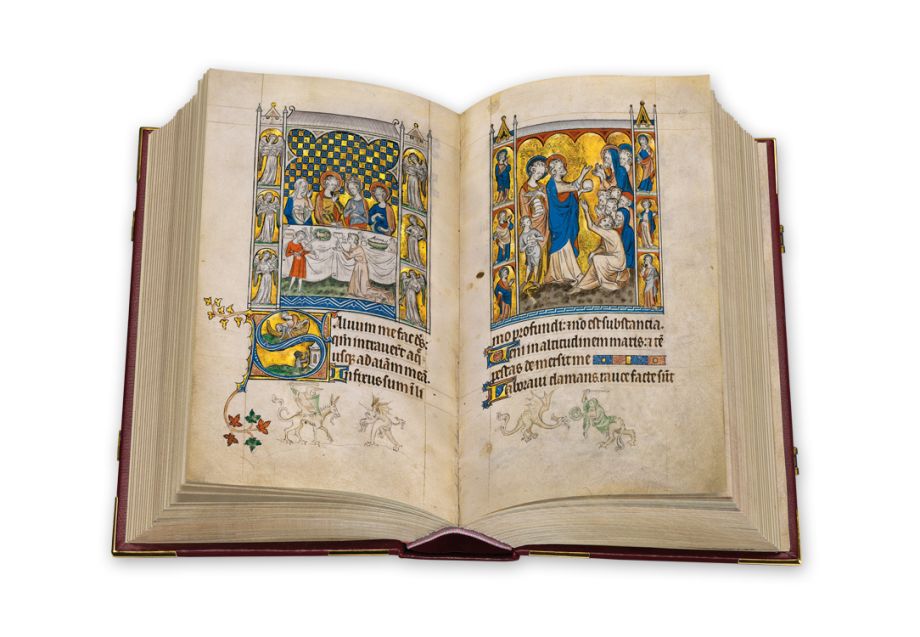 Saluum me fac ds̄:
qm̄ intrauerūt aq̄
usq̄ ad aīam meā.
Infixus sum ī li
mo profundi: ⁊ nō est substancia.
Ueni in altitudinem maris: ⁊ tē
pestas demersit me
Laboraui clamans rauce facte sūt